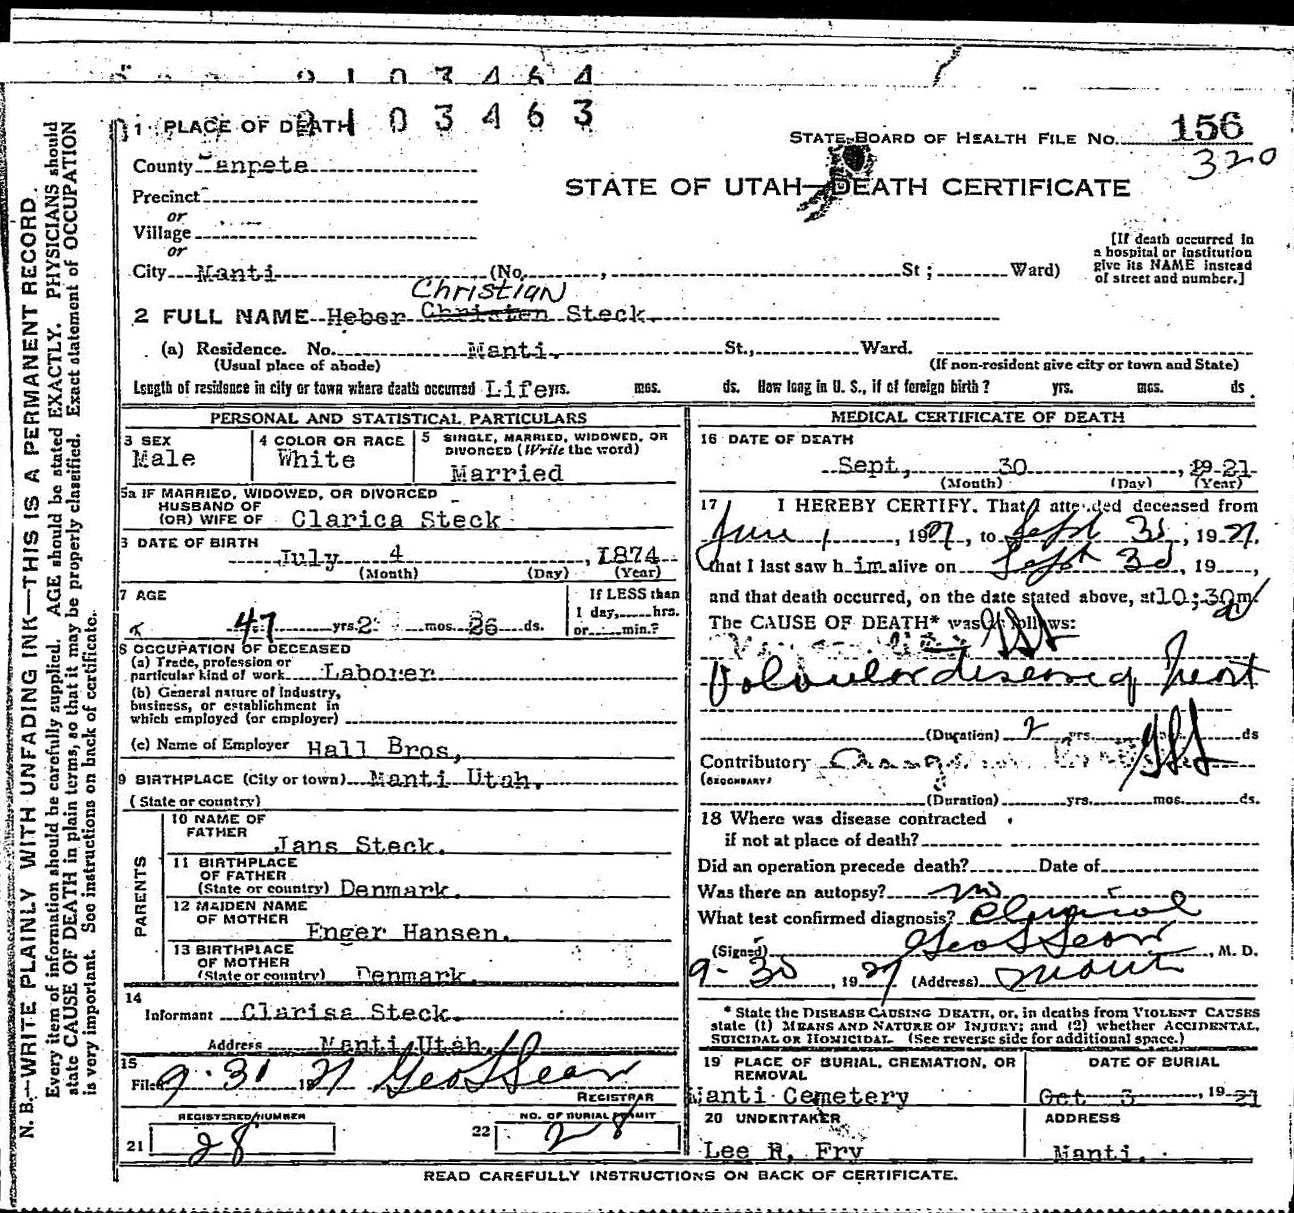 9 1 0 3 4 6 4
9 1 0 3 4 6 3
1 PLACE OF DEATH
STATE BOARD OF HEALTH FILE No. 156
320
County anpete
STATE OF UTAH—DEATH CERTIFICATE
Precinct
or
Village
or
[If death occurred in a hospital or institution give its NAME instead of street and number.]
City Manti (No. , St ; Ward)
Christian
2 FULL NAME Heber Christen Steck
(a) Residence. No. Manti. St., Ward.
(Usual place of abode) (If non-resident give city or town and State)
Length of residence in city or town where death occurred Life yrs. mos. ds. How long in U. S., if of foreign birth? yrs. mos. ds.
PERSONAL AND STATISTICAL PARTICULARS
3 SEX
Male
4 COLOR OR RACE
White
5 SINGLE, MARRIED, WIDOWED, OR DIVORCED (Write the word)
Married
5a IF MARRIED, WIDOWED, OR DIVORCED
HUSBAND OF
(OR) WIFE OF Clarica Steck
DATE OF BIRTH
July 4, 1874
(Month) (Day) (Year)
7 AGE
47 yrs. 2 mos. 26 ds.
If LESS than
1 day, hrs.
or min.?
8 OCCUPATION OF DECEASED
(a) Trade, profession or
particular kind of work Laborer
(b) General nature of industry,
business, or establishment in
which employed (or employer)
(c) Name of Employer Hall Bros,
9 BIRTHPLACE (City or town) Manti Utah.
(State or country)
PARENTS
10 NAME OF
FATHER
Jans Steck.
11 BIRTHPLACE
OF FATHER
(State or country) Denmark.
12 MAIDEN NAME
OF MOTHER
Enger Hansen.
13 BIRTHPLACE
OF MOTHER
(State or country) Denmark.
14
Informant Clarisa Steck.
Address Manti Utah.
15
Filed 9-30 1921
REGISTRAR
REGISTERED NUMBER
21 28
NO. OF BURIAL PERMIT
22 28
MEDICAL CERTIFICATE OF DEATH
16 DATE OF DEATH
Sept, 30, 19 21
(Month) (Day) (Year)
17 I HEREBY CERTIFY. That I attended deceased from
June 1, 1921, to Sept 30, 1921,
that I last saw h im alive on Sept 30, 19 ,
and that death occurred, on the date stated above, at 10:30 m
The CAUSE OF DEATH* was as follows:
Valvular disease of heart
(Duration) 2 yrs. ds
Contributory
(SECONDARY)
(Duration) yrs. mos. ds.
18 Where was disease contracted
if not at place of death?
Did an operation precede death? Date of
Was there an autopsy? no
What test confirmed diagnosis? Clinical
(Signed) , M. D.
9-30, 1921 (Address) Manti
* State the DISEASE CAUSING DEATH, or, in deaths from VIOLENT CAUSES
state (1) MEANS AND NATURE OF INJURY; and (2) whether ACCIDENTAL,
SUICIDAL or HOMICIDAL. (See reverse side for additional space.)
19 PLACE OF BURIAL, CREMATION, OR
REMOVAL
Manti Cemetery
DATE OF BURIAL
Oct 3, 19 21
20 UNDERTAKER
Lee R. Fry
ADDRESS
Manti.
READ CAREFULLY INSTRUCTIONS ON BACK OF CERTIFICATE.
N. B.—WRITE PLAINLY WITH UNFADING INK—THIS IS A PERMANENT RECORD.
Every item of information should be carefully supplied. AGE should be stated EXACTLY. PHYSICIANS should
state CAUSE OF DEATH in plain terms, so that it may be properly classified. Exact statement of OCCUPATION
is very important. See instructions on back of certificate.